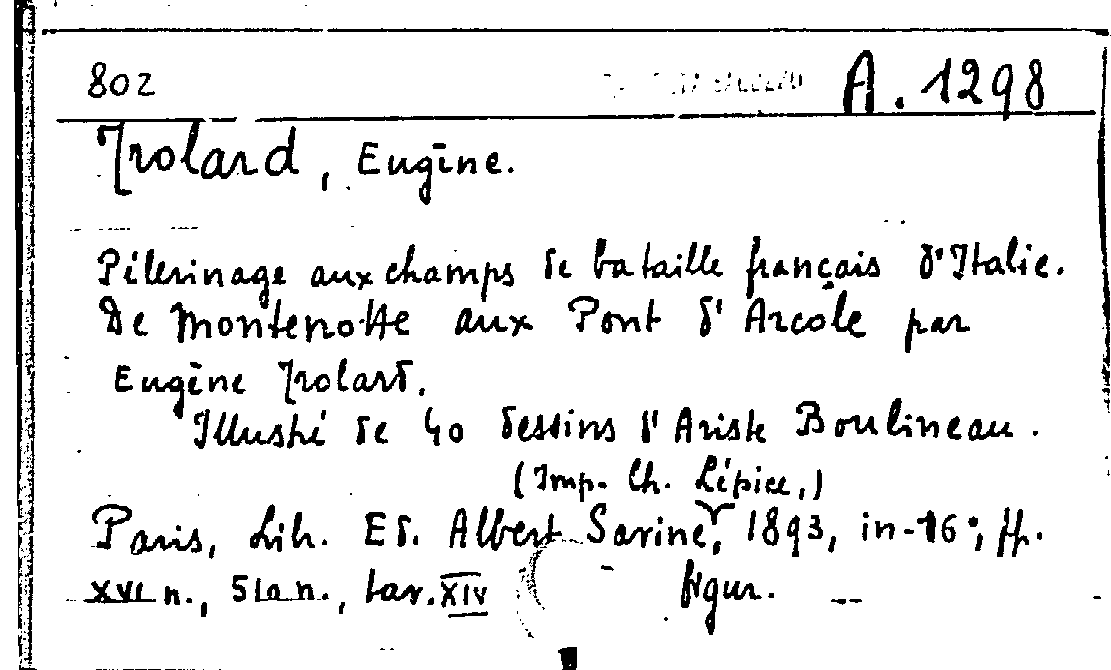 802 A. 1298
Trolard, Eugène.
Pélerinage aux champs de bataille français d'Italie.
De Montenotte aux Pont d'Arcole par
Eugène Trolard.
Illustré de 40 dessins d'Ariste Boulineau.
(Imp. Ch. Lépice,)
Paris, Lib. Ed. Albert Savine, 1893, in-16°; pp.
XVI n., 510 n., tav. XIV figur.